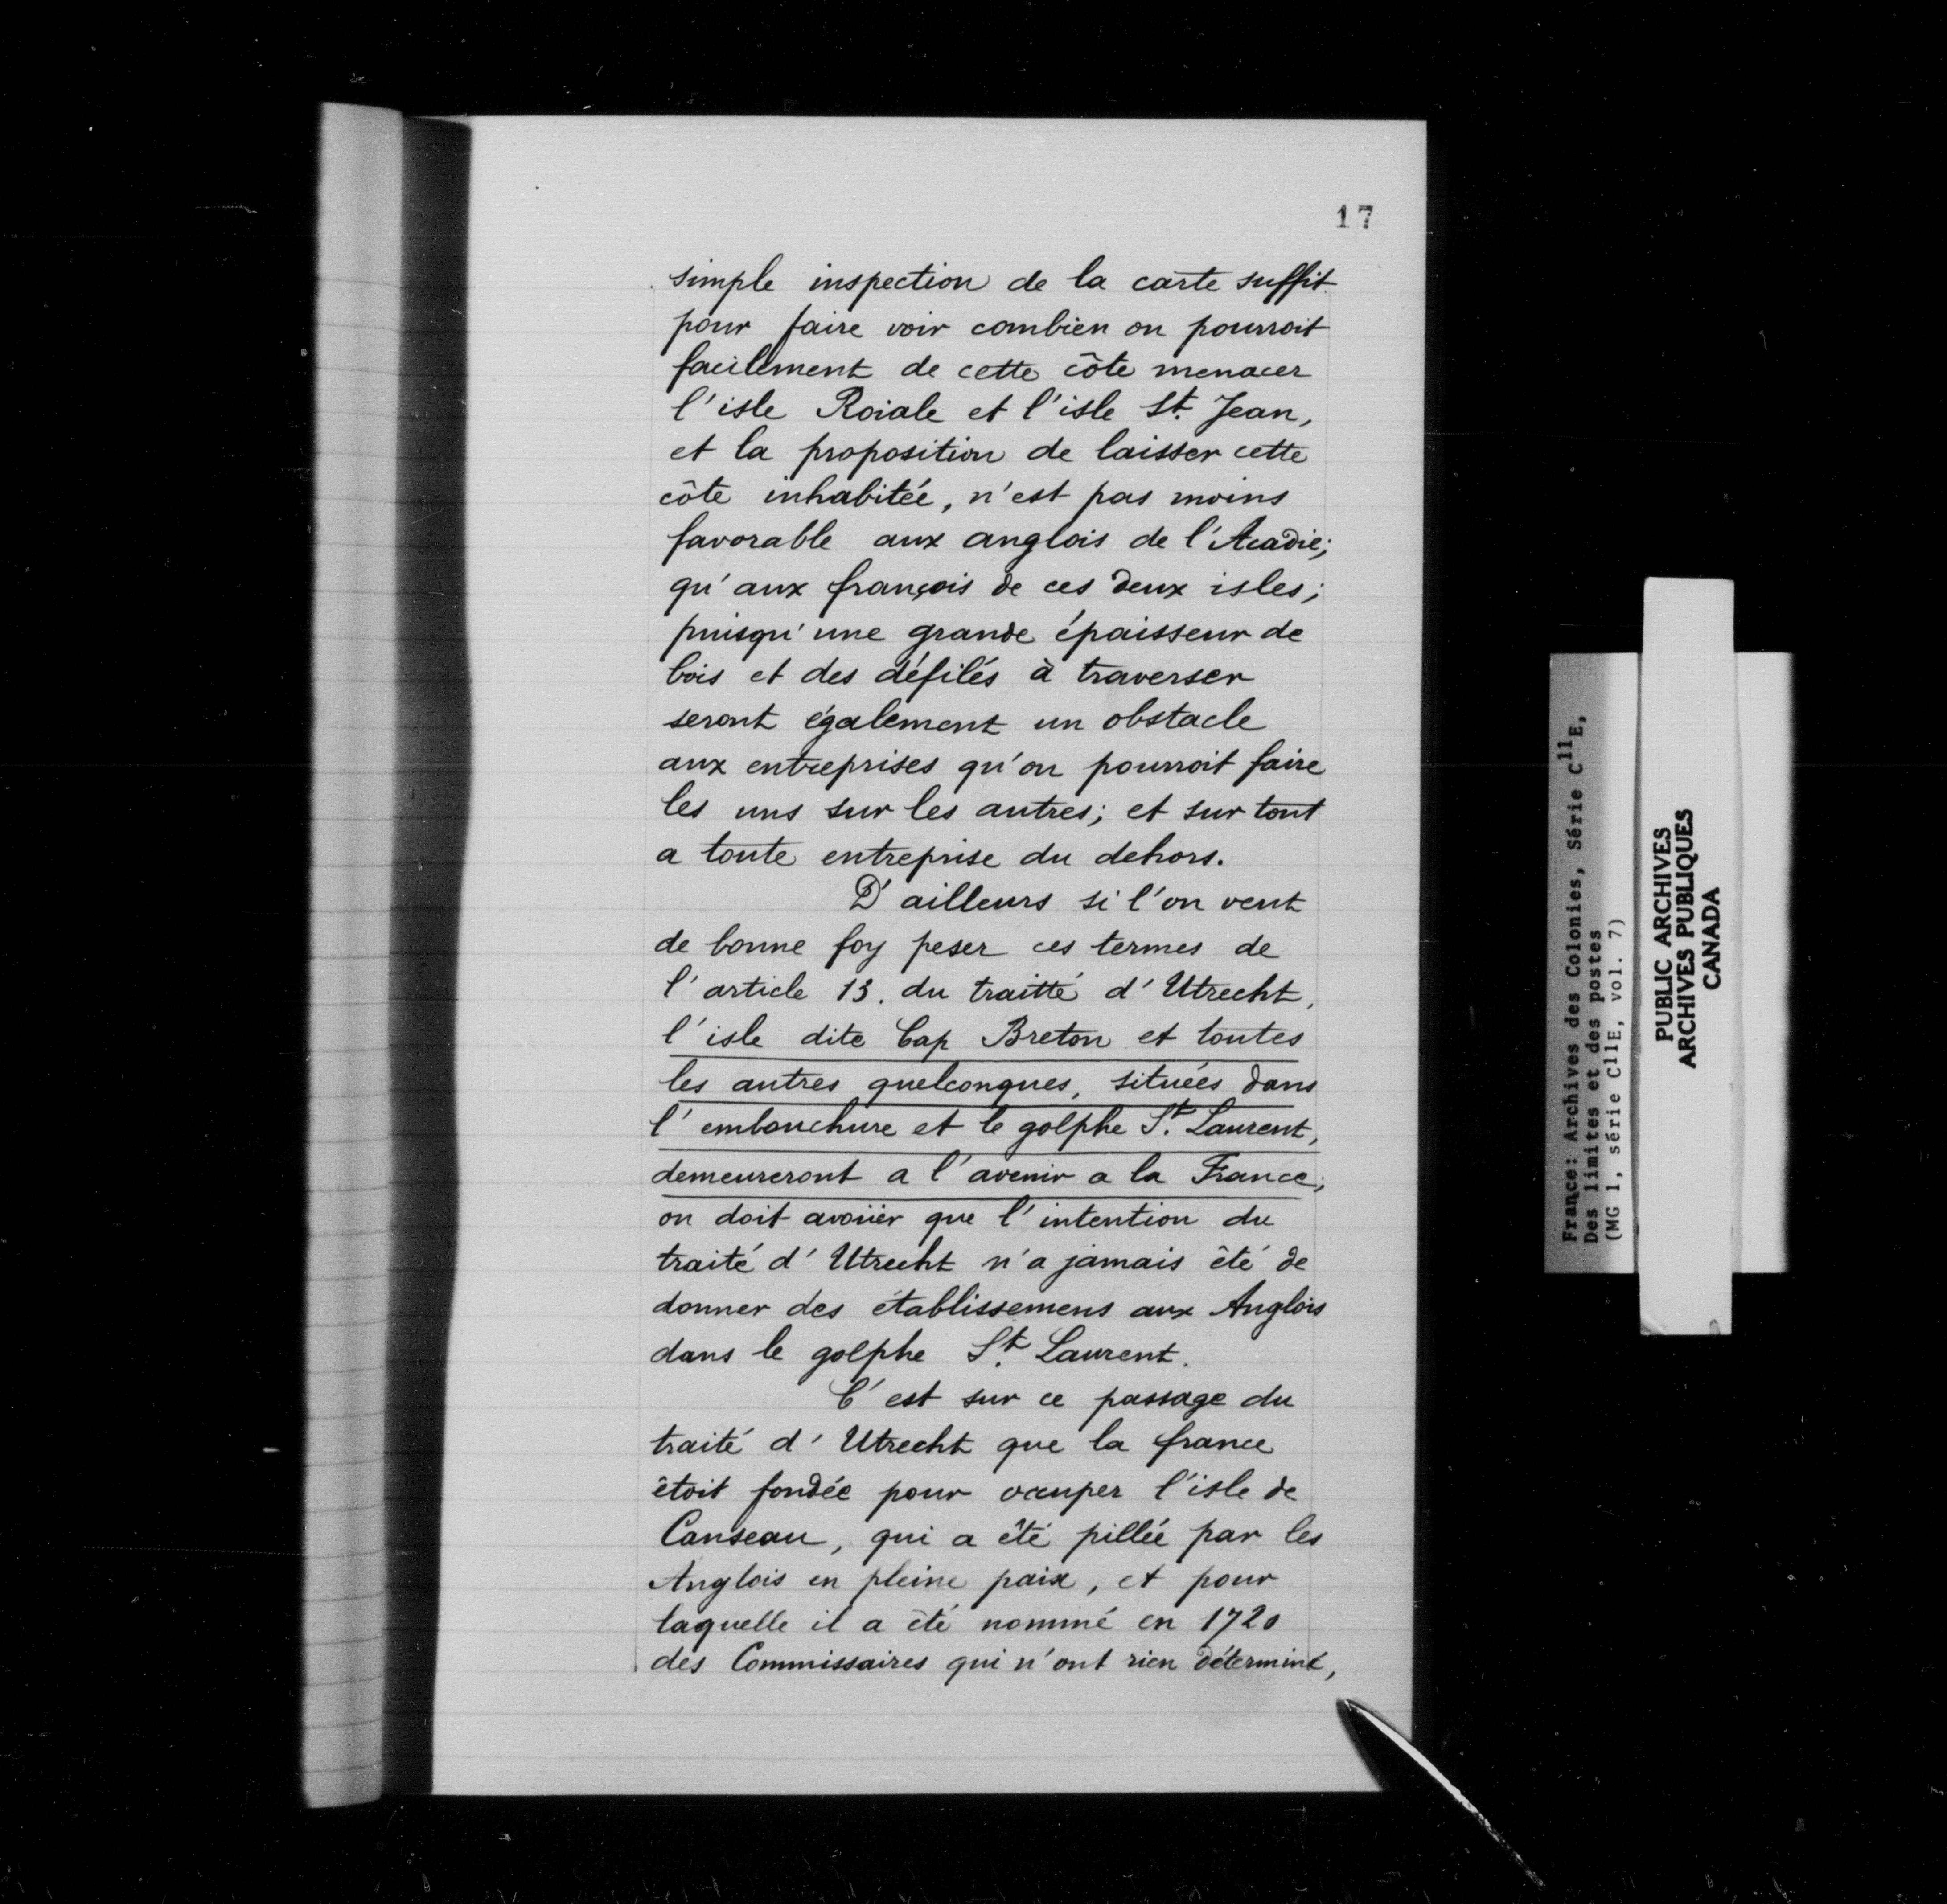 17
simple inspection de la carte suffit
pour faire voir combien on pourroit
facilement de cette côte menacer
l'isle Roiale et l'isle St. Jean,
et la proposition de laisser cette
côte inhabitée, n'est pas moins
favorable aux anglois de l'Acadie;
qu'aux françois de ces deux isles;
puisqu'une grande épaisseur de
bois et des défilés à traverser
seront également un obstacle
aux entreprises qu'on pourroit faire
les uns sur les autres; et sur tout
a toute entreprise du dehors.
D'ailleurs si l'on veut
de bonne foy peser ces termes de
l'article 13. du traitté d'Utrecht,
l'isle dite Cap Breton et toutes
les autres quelconques, situées dans
l'embouchure et le golphe St. Laurent,
demeureront a l'avenir a la France;
on doit avoüer que l'intention du
traité d'Utrecht n'a jamais êté de
donner des établissemens aux Anglois
dans le golphe St. Laurent.
C'est sur ce passage du
traité d'Utrecht que la france
êtoit fondée pour occuper l'isle de
Canseau, qui a êté pillée par les
Anglois en pleine paix, et pour
laquelle il a êté nommé en 1720
des Commissaires qui n'ont rien déterminé,
France: Archives des Colonies, Série C11E,
Des limites et des postes
(MG 1, série C11E, vol. 7)
PUBLIC ARCHIVES
ARCHIVES PUBLIQUES
CANADA